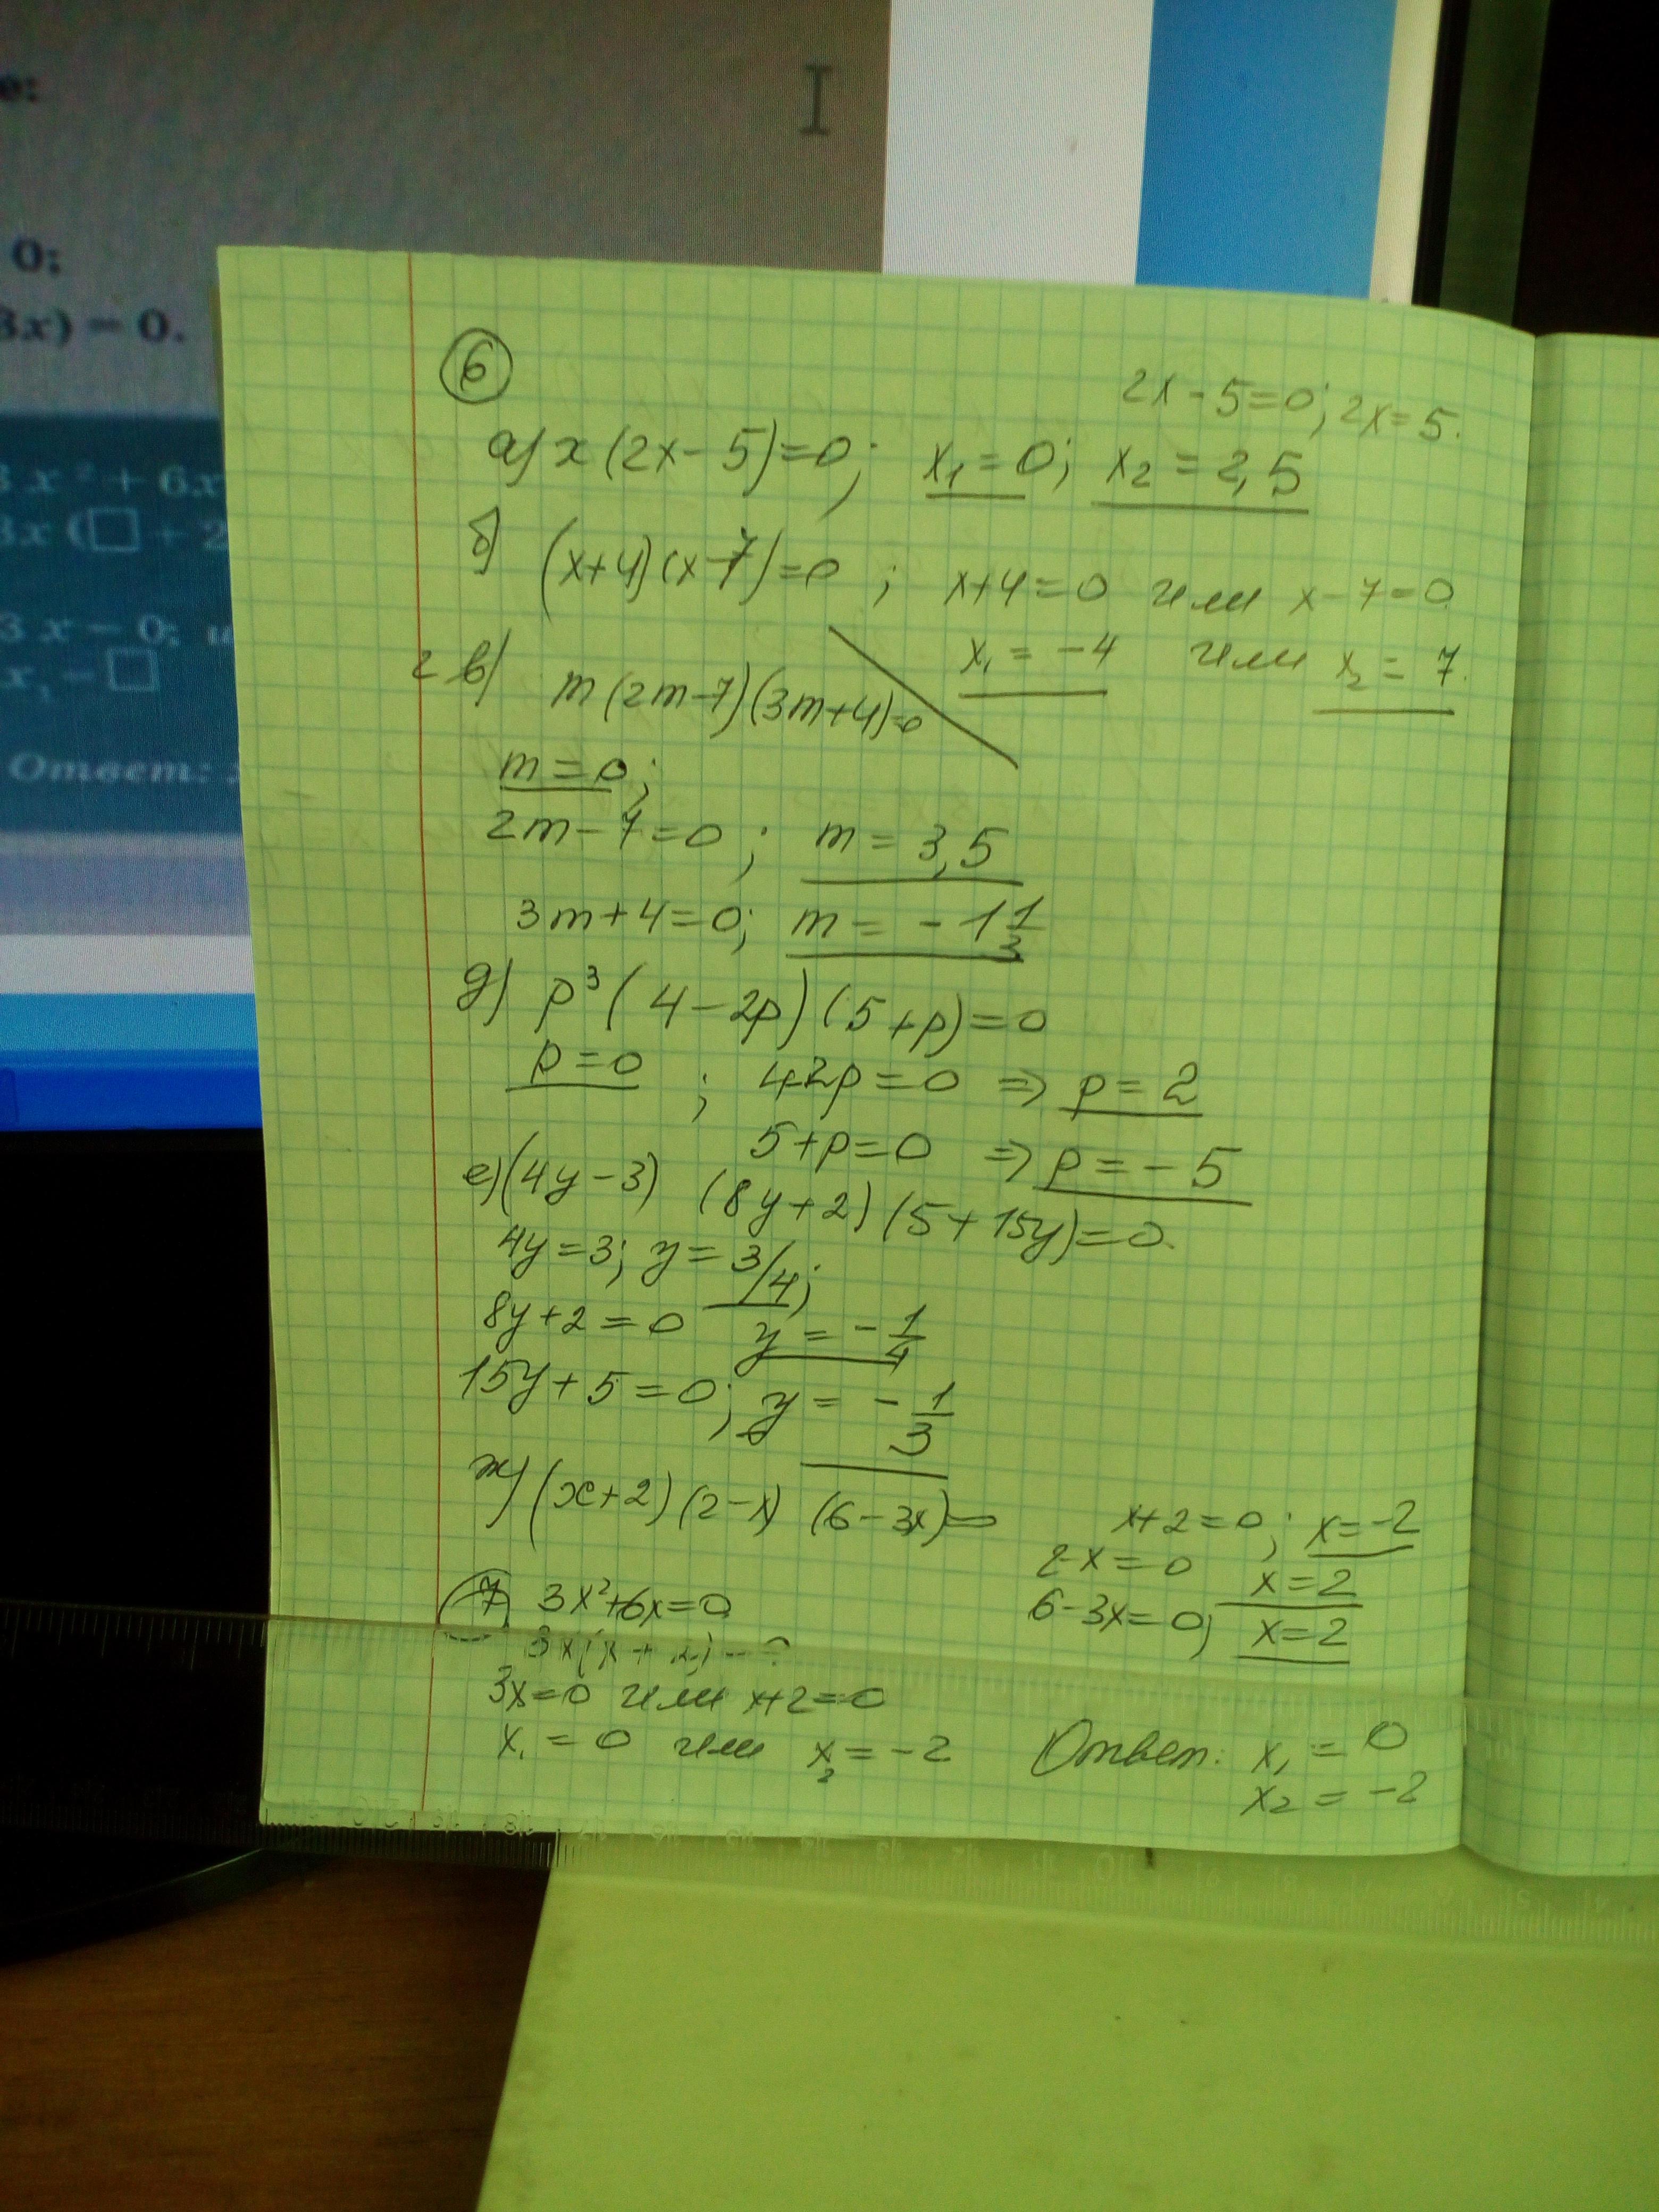 е:
0;
3x) = 0.
3x² + 6x
3x (□ + 2
3x = 0; и
x₁ = □
Ответ:
6
2x - 5=0; 2x=5.
а) x(2x-5)=0; x₁=0; x₂=2,5
б) (x+4)(x-7)=0; x+4=0 или x-7=0
x₁ = -4 или x₂ = 7.
г в) m(2m-7)(3m+4)=0
m=0;
2m-7=0; m=3,5
3m+4=0; m= -1 1/3
д) p³(4-2p)(5+p)=0
p=0; 4-2p=0 => p=2
5+p=0 => p=-5
е) (4y-3) (8y+2)(5+15y)=0.
4y=3; y=3/4;
8y+2=0 y=-1/4
15y+5=0; y= -1/3
ж) (x+2)(2-x) (6-3x)= x+2=0; x=-2
2-x=0 x=2
6-3x=0; x=2
7 3x²+6x=0
3x(x+2)=
3x=0 или x+2=0
x₁ = 0 или x₂ = -2 Ответ: x₁ = 0
x₂ = -2